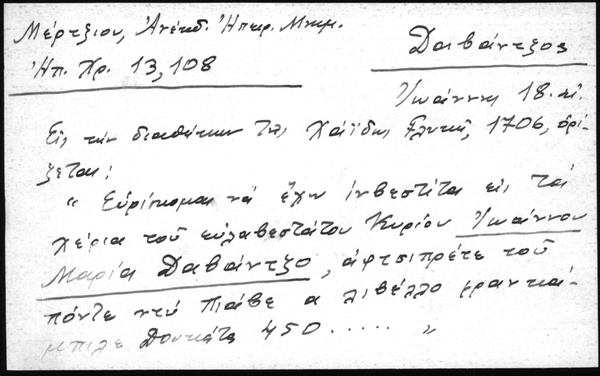 Μέρτζιου, Ἀνέκδ. Ἠπειρ. Μνημ.
Ἠπ. Χρ. 13, 108
Δαβάντζος
Ἰωάννης 18. αἰ.
Εἰς τὴν διαθήκην τῆς Χάϊδως Γλυκῆ, 1706, ὁρί-
ζεται:
" Εὑρίσκομαι νὰ ἔχω ἰνβεστίτα εἰς τὰ
χέρια τοῦ εὐλαβεστάτου Κυρίου Ἰωάννου
Μαρία Δαβάντζο, ἀρτσιπρέτε τοῦ
πόντε ντὺ Πιάβε α λιβέλλο φρανκά-
μπιλε Δουκάτα 450 ..... "